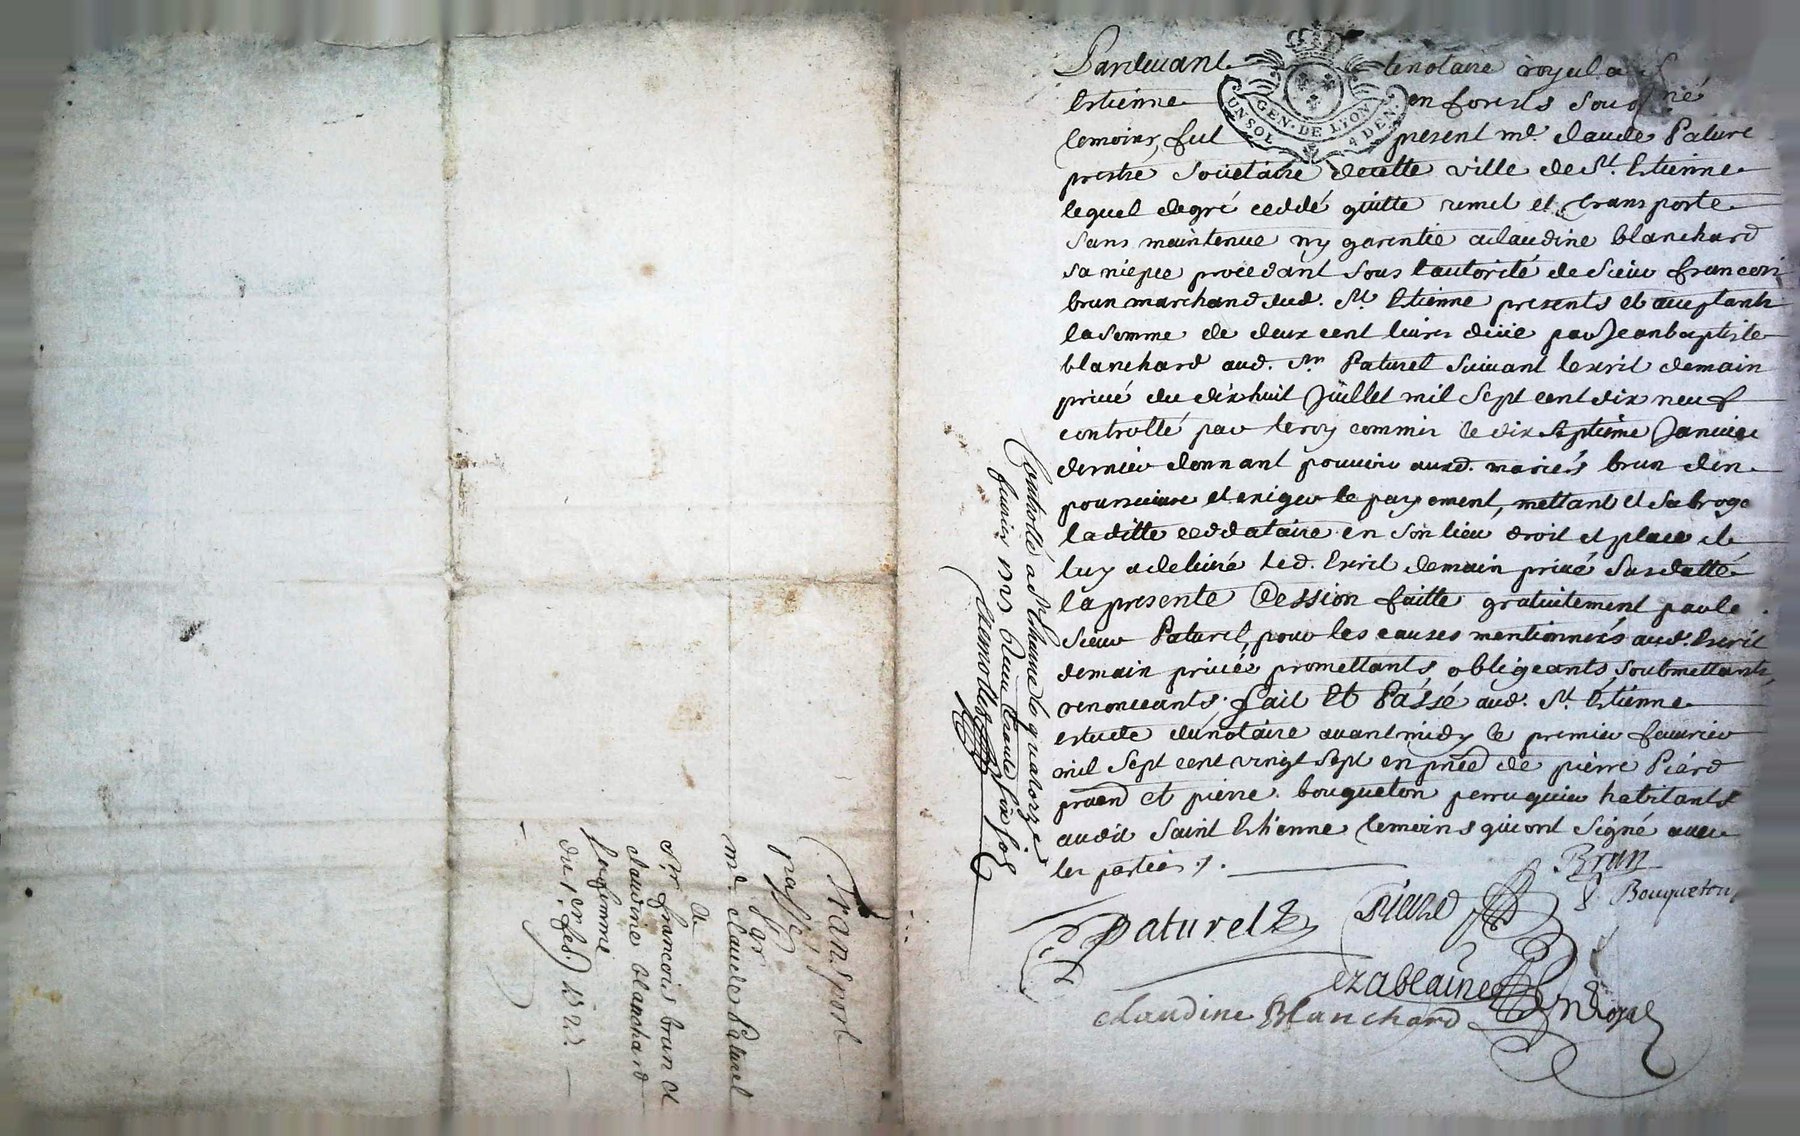 Parduvant le notaire royal a S
Estienne en forests soussigné
temoins, fut present mr. claude Paturel
prestre societaire de cette ville de St. Etienne
lequel de gré cedde quitte remet et transporte
sans maintenue ny garentie a claudine blanchard
sa niepce procedant sous l'autorité de sieur francois
brun marchand dud. St. Etienne presents et acceptants
la somme de deux cent livres düe par Jean baptiste
blanchard aud. Sr. Paturel suivant l'ecrit de main
privé du dix huit Juillet mil sept cent dix neuf
controllé par le roy commis le dix septieme Janvier
dernier donnant pouvoir auxd. mariés brun d'en
poursuivre et exiger le payement, mettant et subroge
la ditte ceddataire en son lieu droit et place et
luy a delivré led. Escrit de main privé susdatté
la presente Cession faitte gratuitement par le
sieur Paturel, pour les causes mentionnées aud. Escrit
de main privée promettants, obligeants, soubmettants,
renonceants. fait Et Passé aud. St. Etienne
estude du notaire avant midy le premier feuvrier
mil sept cent vingt sept en pnce de pierre Piard
pratn et pierre bouqueton perruquier habitants
audit Saint Etienne temoins qui ont signé avec
les parties ./.
Brun
Paturel Piard Bouqueton
ezablaine nre Royal
claudine Blanchard
Controllé a St Etienne le quatorze
fevrier 1727 Receu trente six sols
Transport
passé
par
mr. claude Paturel
a
Sr francois brun et
claudine blanchard
sa femme
du 1er feb. 1727
GEN. DE LYON
UN SOL 4 DEN.